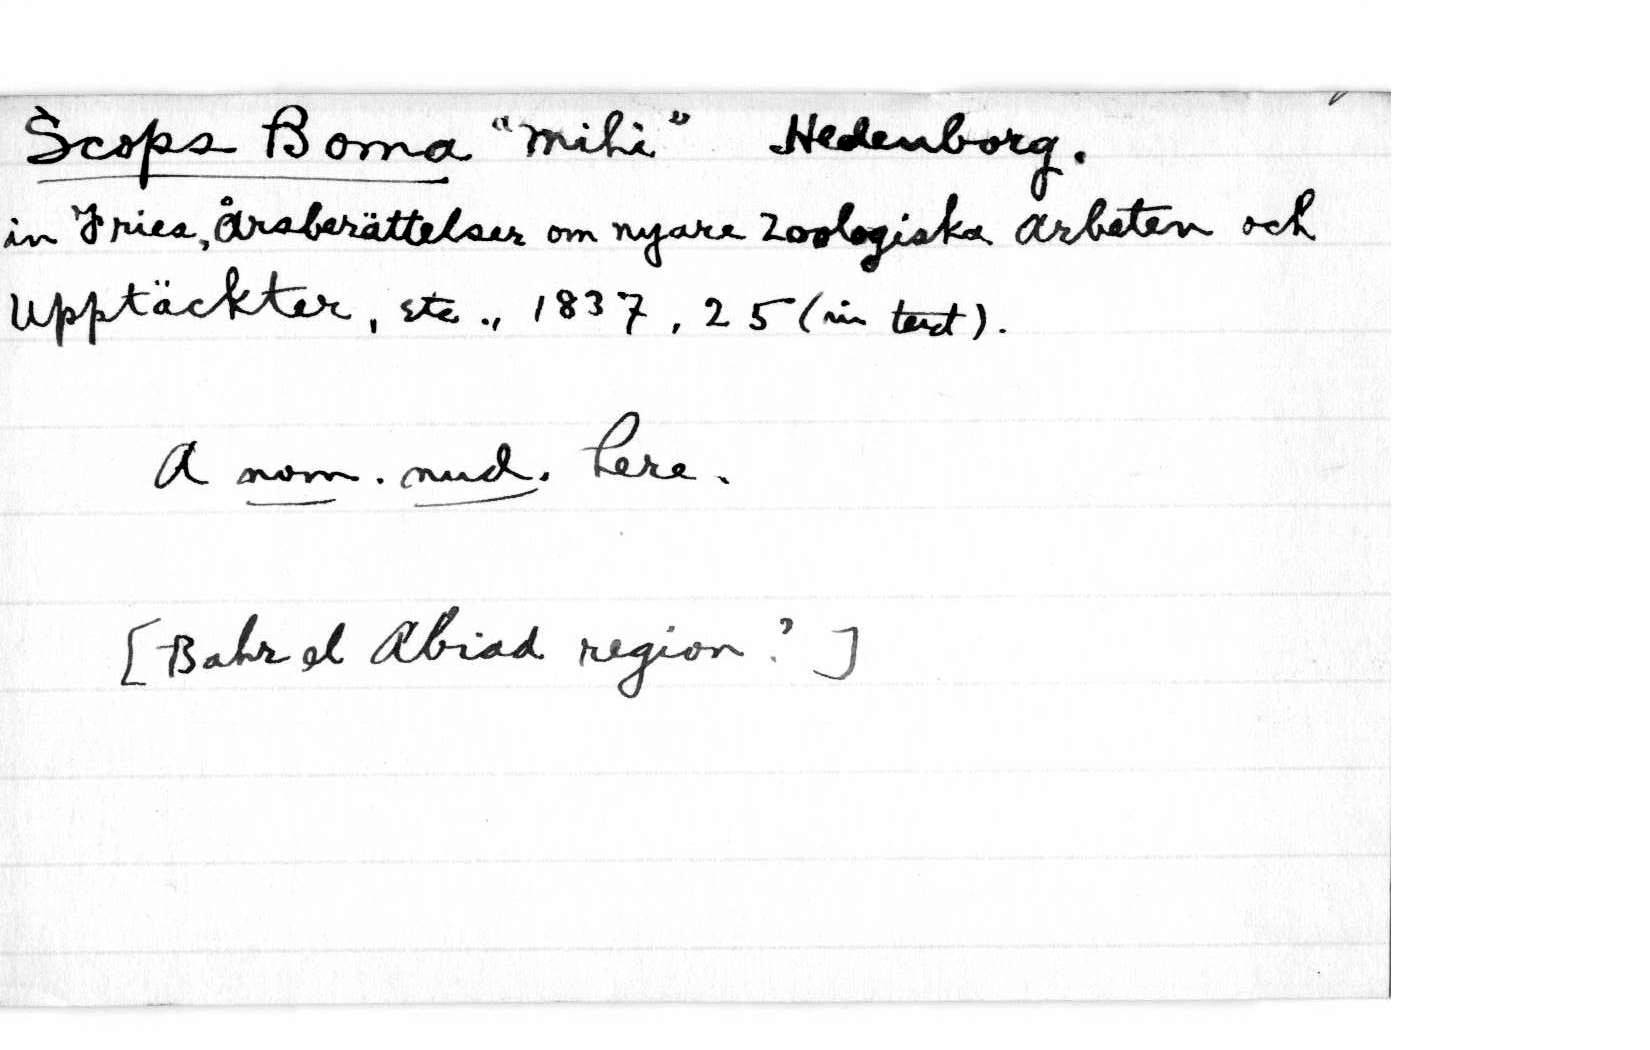 Scops Boma "mihi" Hedenborg.
in Fries, Årsberättelser om nyare Zoologiska Arbeten och
Upptäckter, etc., 1837, 25 (in text).
A nom. nud. here.
[Bahr el Abiad region? ]